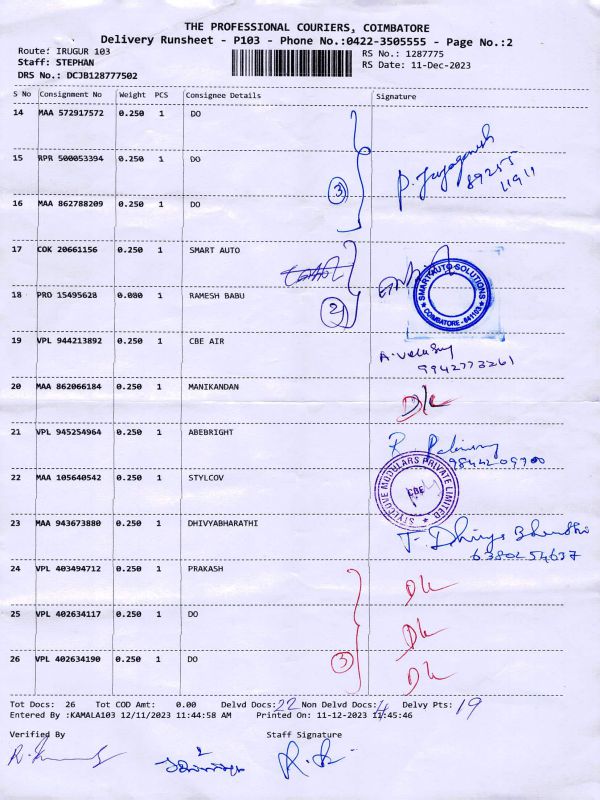 THE PROFESSIONAL COURIERS, COIMBATORE
Delivery Runsheet - P103 - Phone No.:0422-3505555 - Page No.:2
Route: IRUGUR 103 RS No.: 1287775
Staff: STEPHAN RS Date: 11-Dec-2023
DRS No.: DCJB128777502
S No Consignment No Weight PCS Consignee Details Signature
14 MAA 572917572 0.250 1 DO
15 RPR 500053394 0.250 1 DO
89255
11911
3
16 MAA 862788209 0.250 1 DO
17 COK 20661156 0.250 1 SMART AUTO
SMART AUTO SOLUTIONS
COIMBATORE - 641103
18 PRD 15495628 0.080 1 RAMESH BABU
2
19 VPL 944213892 0.250 1 CBE AIR
9942773261
20 MAA 862066184 0.250 1 MANIKANDAN
D/L
21 VPL 945254964 0.250 1 ABEBRIGHT
22 MAA 105640542 0.250 1 STYLCOV
STYLCOVE MODULARS PRIVATE LIMITED
CBE
23 MAA 943673880 0.250 1 DHIVYABHARATHI
6380454637
24 VPL 403494712 0.250 1 PRAKASH
D/L
25 VPL 402634117 0.250 1 DO
D/L
26 VPL 402634190 0.250 1 DO
3
D/L
Tot Docs: 26 Tot COD Amt: 0.00 Delvd Docs: 22 Non Delvd Docs: 4 Delvy Pts: 19
Entered By :KAMALA103 12/11/2023 11:44:58 AM Printed On: 11-12-2023 11:45:46
Verified By Staff Signature